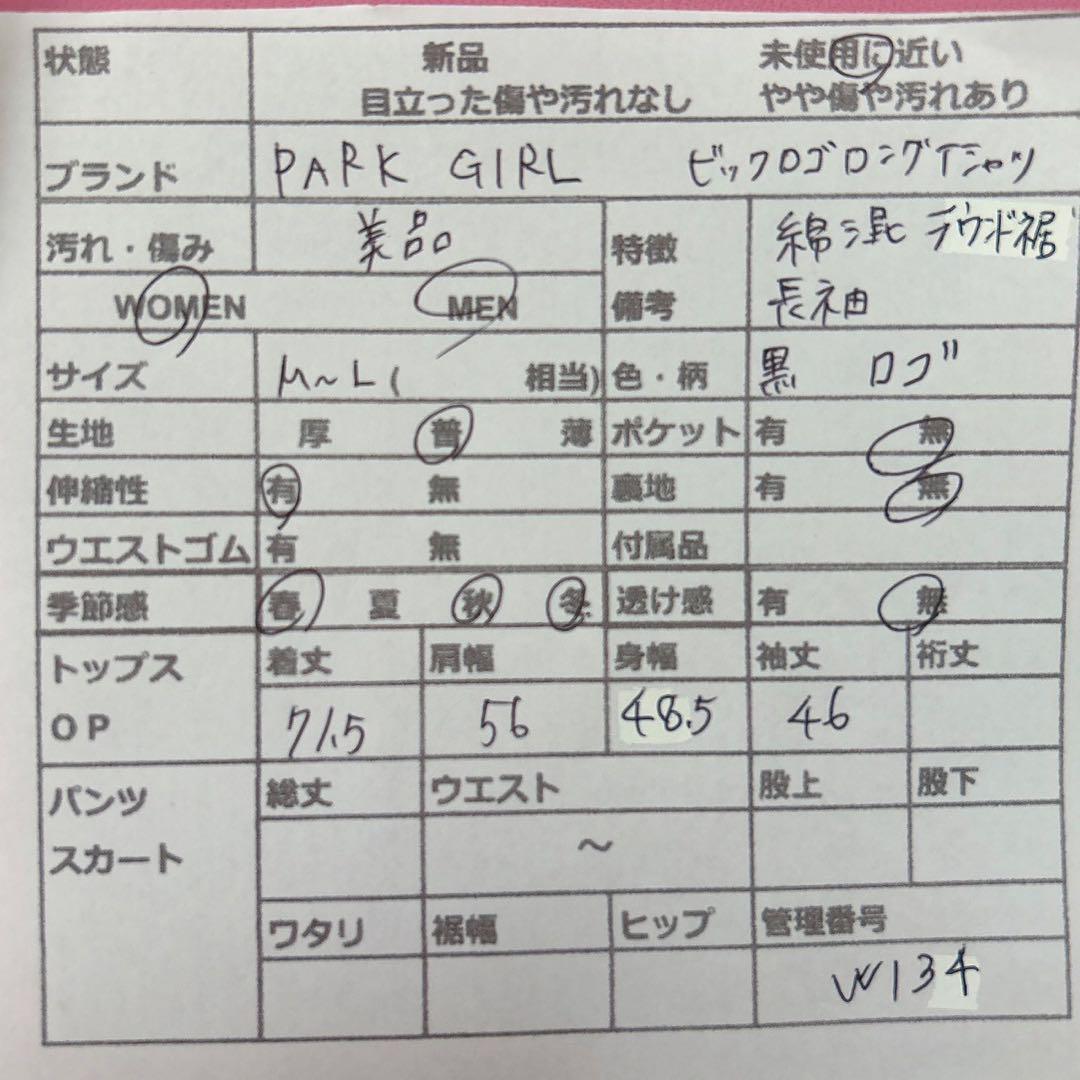 状態 新品 未使用に近い
目立った傷や汚れなし やや傷や汚れあり
ブランド PARK GIRL ビックロゴロングTシャツ
汚れ・傷み 美品。 特徴 綿混 ラウンド裾
WOMEN MEN 備考 長袖
サイズ M~L( 相当) 色・柄 黒 ロゴ
生地 厚 普 薄 ポケット 有 無
伸縮性 有 無 裏地 有 無
ウエストゴム 有 無 付属品
季節感 春 夏 秋 冬 透け感 有 無
トップス 着丈 肩幅 身幅 袖丈 裄丈
OP 71.5 56 48.5 46
パンツ 総丈 ウエスト 股上 股下
スカート ~
ワタリ 裾幅 ヒップ 管理番号
W134